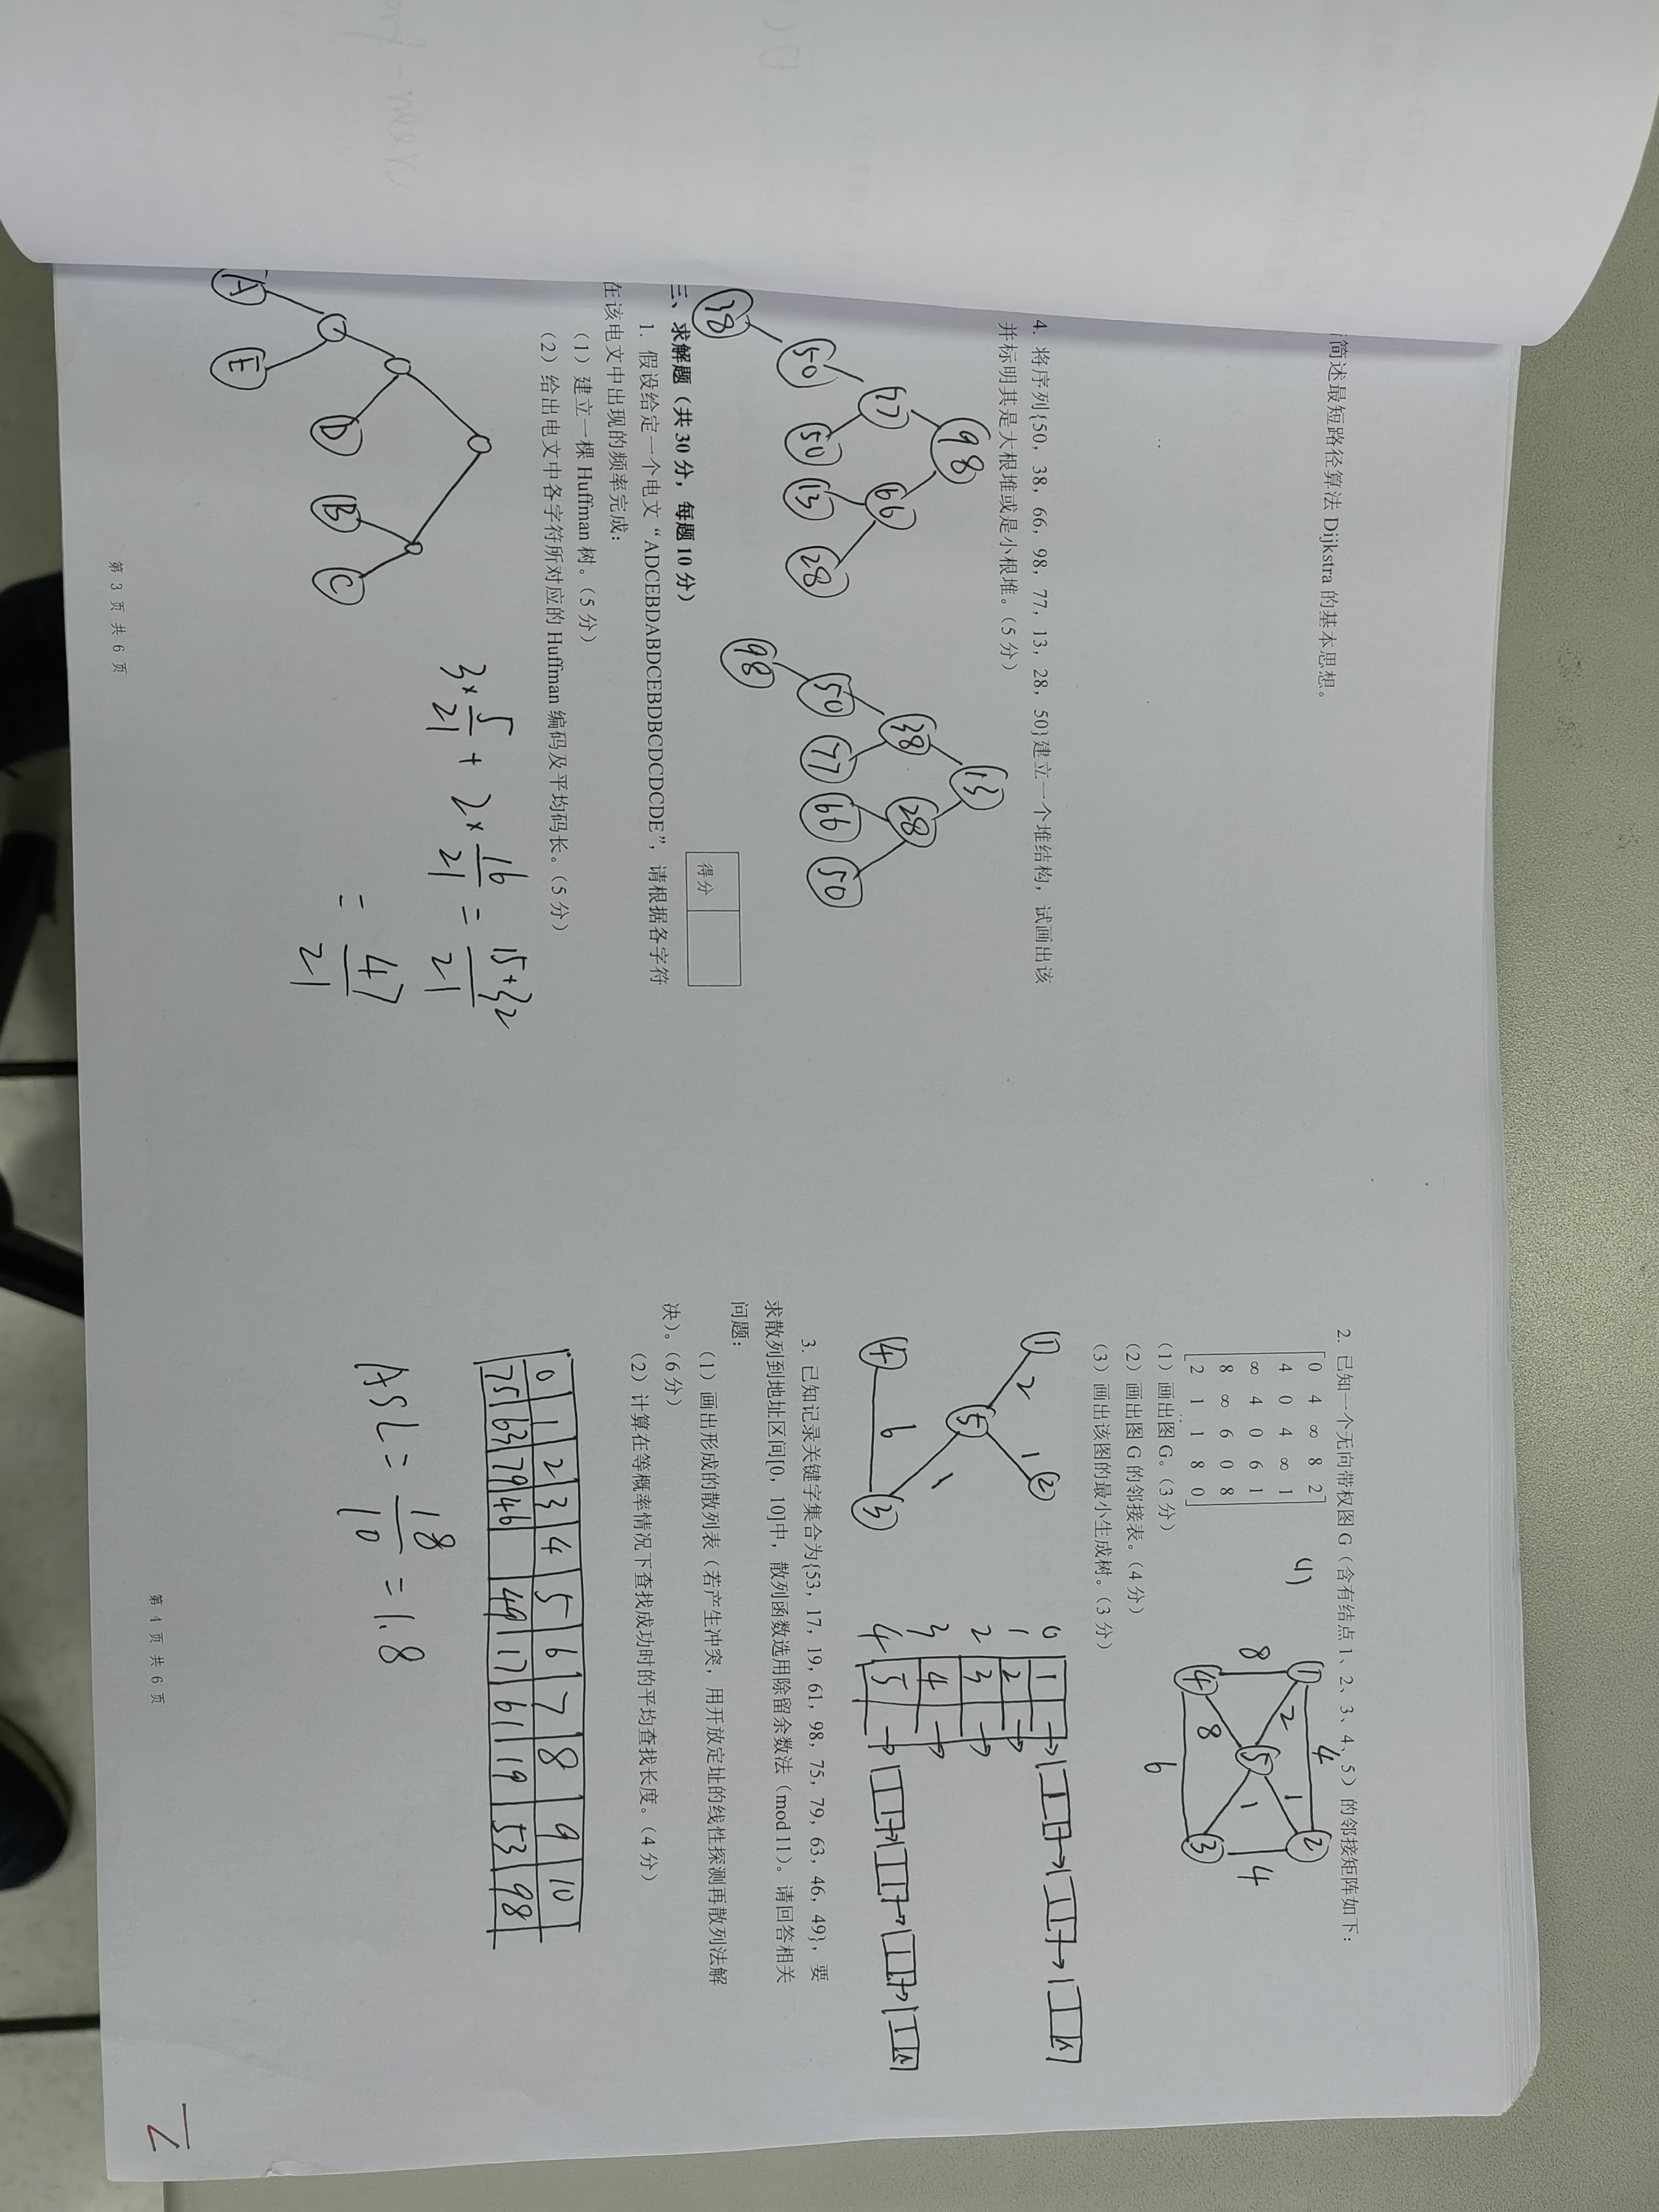 简述最短路径算法 Dijkstra 的基本思想。
4. 将序列{50，38，66，98，77，13，28，50}建立一个堆结构，试画出该
并标明其是大根堆或是小根堆。（5 分）
98
77 66
50 50 13 28
38
13
38 28
50 77 66 50
98
得分
三、求解题（共 30 分，每题 10 分）
1. 假设给定一个电文“ADCEBDABDCEBDBCDCDCDE”，请根据各字符
在该电文中出现的频率完成：
（1）建立一棵 Huffman 树。（5 分）
（2）给出电文中各字符所对应的 Huffman 编码及平均码长。（5 分）
D B C
A E
3×5/21 + 2×16/21 = 15+32/21
= 47/21
第 3 页 共 6 页
2. 已知一个无向带权图 G（含有结点 1、2、3、4、5）的邻接矩阵如下：
0 4 ∞ 8 2
4 0 4 ∞ 1
∞ 4 0 6 1
8 ∞ 6 0 8
2 1 1 8 0
(1)
1 4 2
2 1
8 5 4
1
4 8 3
6
（1）画出图 G。（3 分）
（2）画出图 G 的邻接表。（4 分）
（3）画出该图的最小生成树。（3 分）
1 2
2 1
5
1
4 6 3
0 1 1
1 2
2 3
3 4
4 5
3. 已知记录关键字集合为{53，17，19，61，98，75，79，63，46，49}，要
求散列到地址区间[0，10]中，散列函数选用除留余数法（mod 11）。请回答相关
问题：
（1）画出形成的散列表（若产生冲突，用开放定址的线性探测再散列法解
决）。（6 分）
（2）计算在等概率情况下查找成功时的平均查找长度。（4 分）
0 1 2 3 4 5 6 7 8 9 10
75 63 79 46 49 17 61 19 53 98
ASL = 18/10 = 1.8
第 4 页 共 6 页